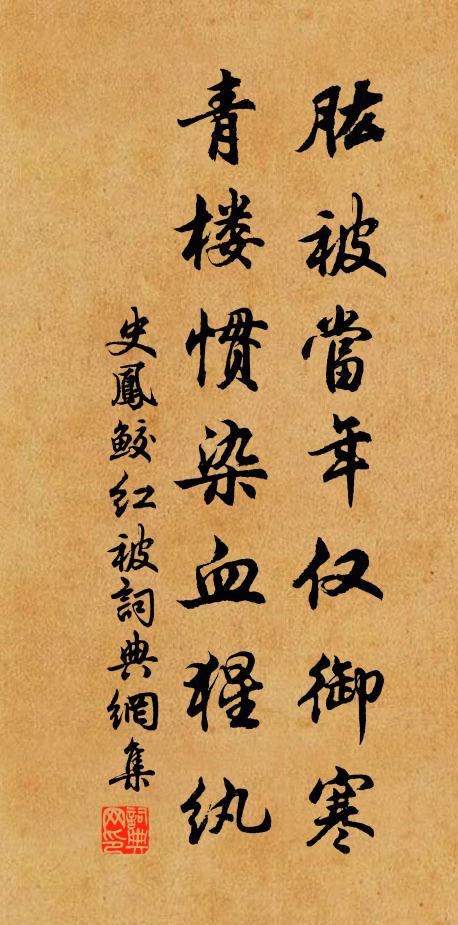 肱被當年仅御寒
青楼慣染血猩纨
史鳳鲛红被詞典網集
詞典网印